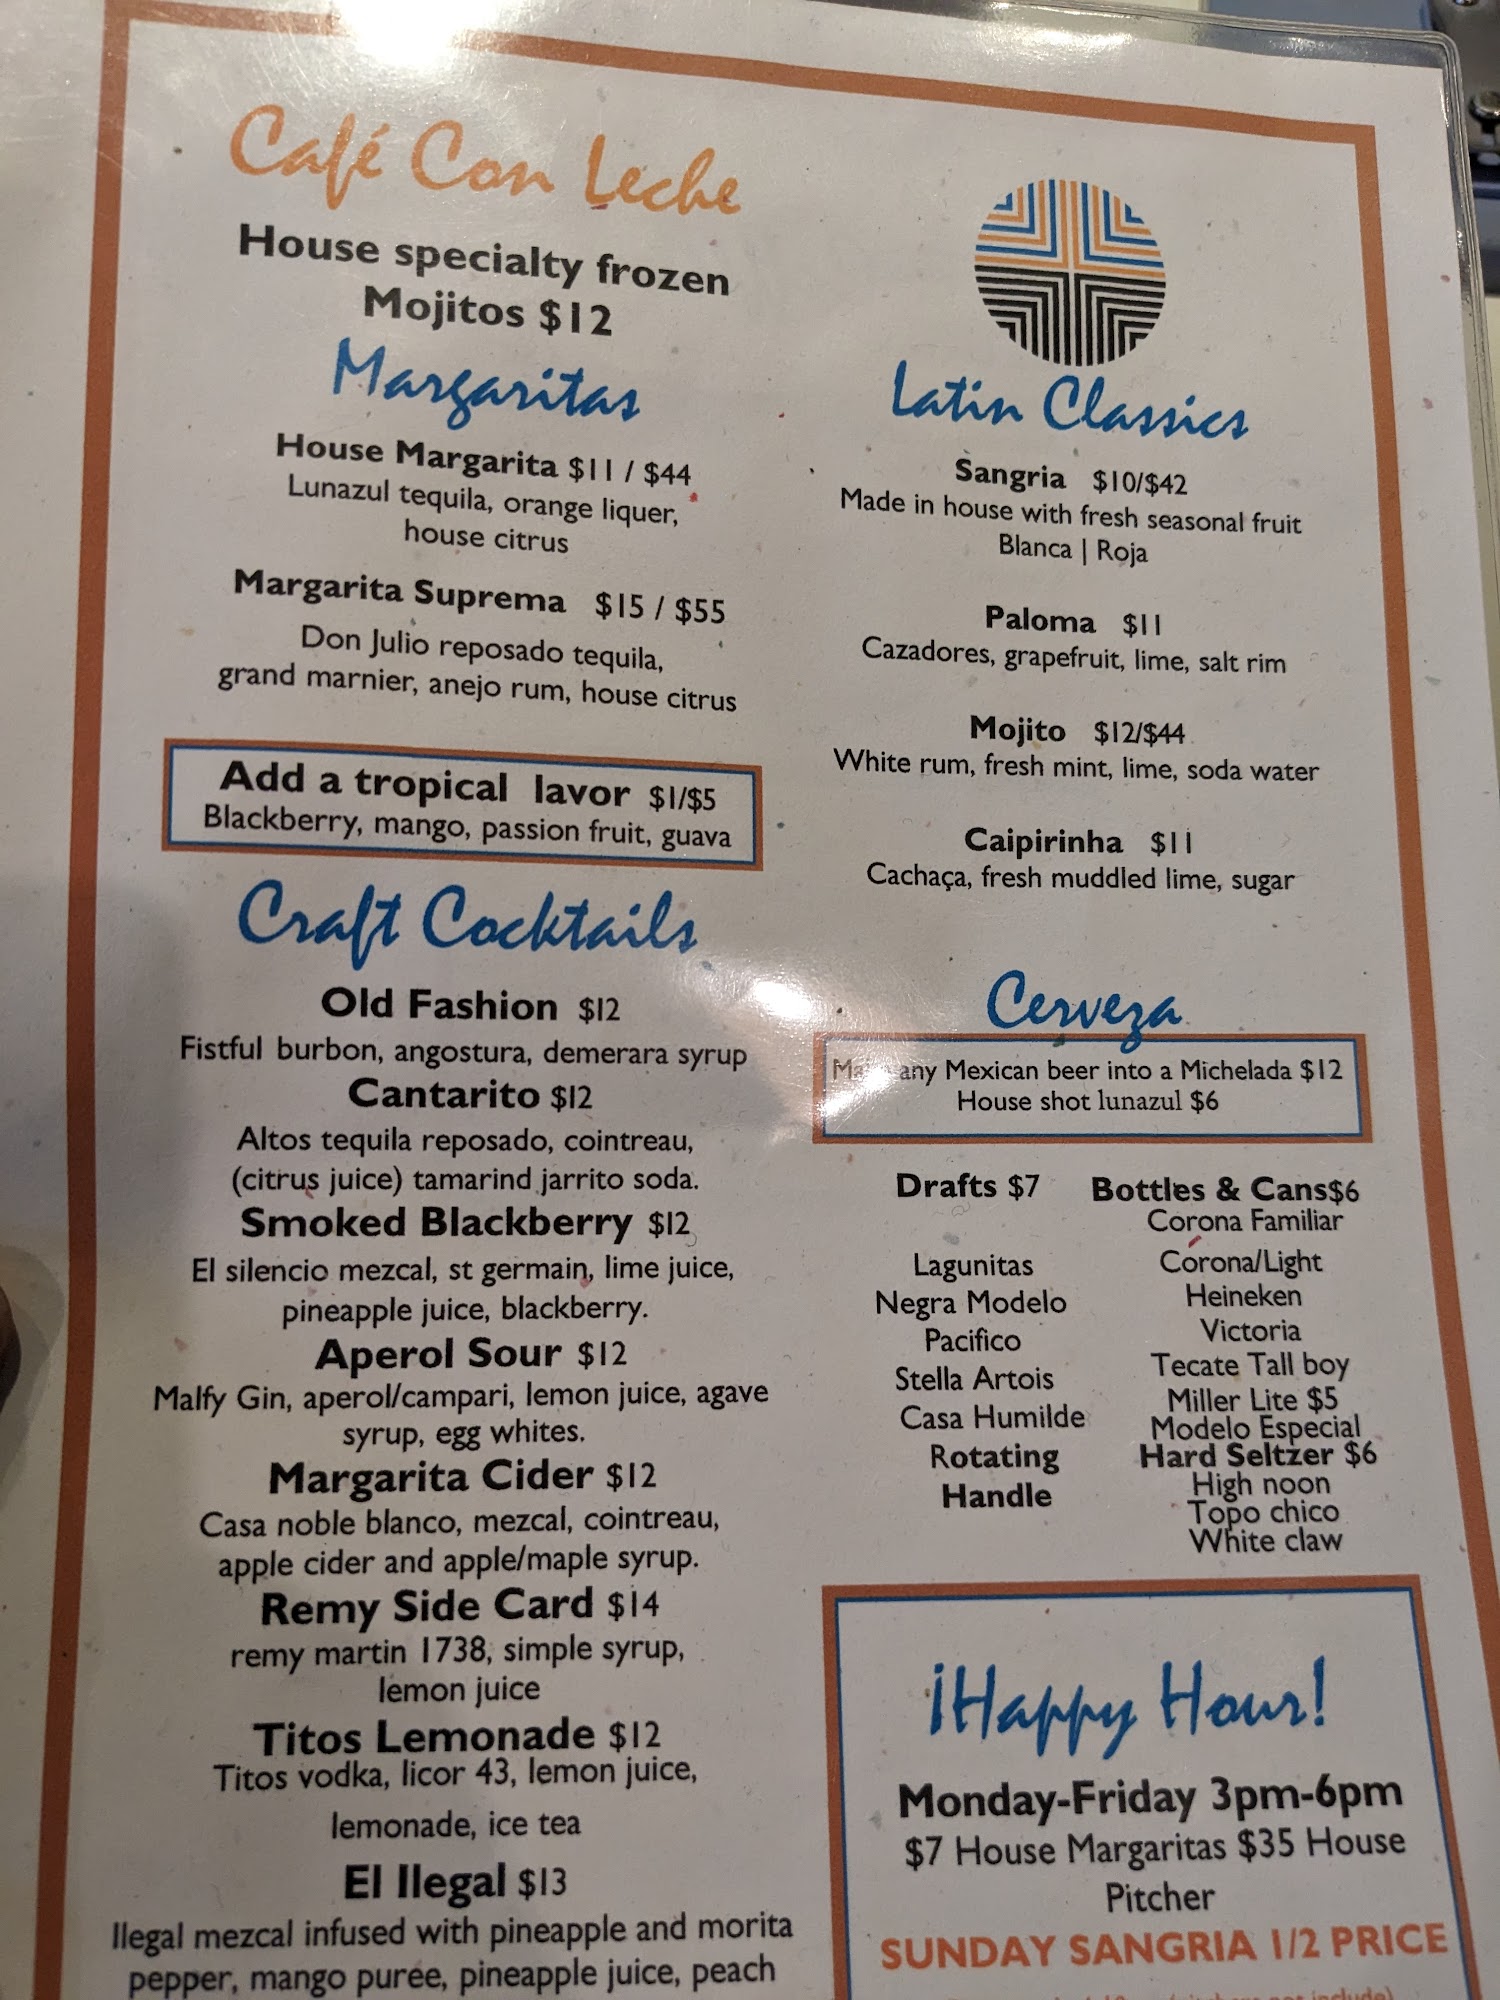 Café Con Leche
House specialty frozen
Mojitos $12
Margaritas
House Margarita $11 / $44
Lunazul tequila, orange liquer,
house citrus
Margarita Suprema $15 / $55
Don Julio reposado tequila,
grand marnier, anejo rum, house citrus
Add a tropical lavor $1/$5
Blackberry, mango, passion fruit, guava
Craft Cocktails
Old Fashion $12
Fistful burbon, angostura, demerara syrup
Cantarito $12
Altos tequila reposado, cointreau,
(citrus juice) tamarind jarrito soda.
Smoked Blackberry $12
El silencio mezcal, st germain, lime juice,
pineapple juice, blackberry.
Aperol Sour $12
Malfy Gin, aperol/campari, lemon juice, agave
syrup, egg whites.
Margarita Cider $12
Casa noble blanco, mezcal, cointreau,
apple cider and apple/maple syrup.
Remy Side Card $14
remy martin 1738, simple syrup,
lemon juice
Titos Lemonade $12
Titos vodka, licor 43, lemon juice,
lemonade, ice tea
El Ilegal $13
Ilegal mezcal infused with pineapple and morita
pepper, mango puree, pineapple juice, peach
Latin Classics
Sangria $10/$42
Made in house with fresh seasonal fruit
Blanca | Roja
Paloma $11
Cazadores, grapefruit, lime, salt rim
Mojito $12/$44
White rum, fresh mint, lime, soda water
Caipirinha $11
Cachaça, fresh muddled lime, sugar
Cerveza
any Mexican beer into a Michelada $12
House shot lunazul $6
Drafts $7
Lagunitas
Negra Modelo
Pacifico
Stella Artois
Casa Humilde
Rotating
Handle
Bottles & Cans$6
Corona Familiar
Corona/Light
Heineken
Victoria
Tecate Tall boy
Miller Lite $5
Modelo Especial
Hard Seltzer $6
High noon
Topo chico
White claw
¡Happy Hour!
Monday-Friday 3pm-6pm
$7 House Margaritas $35 House
Pitcher
SUNDAY SANGRIA 1/2 PRICE